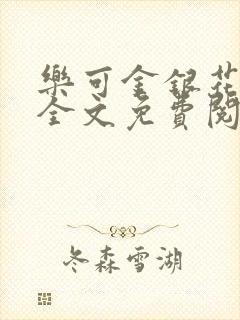 樂可金銀花
全文免費閱
冬森雪湖